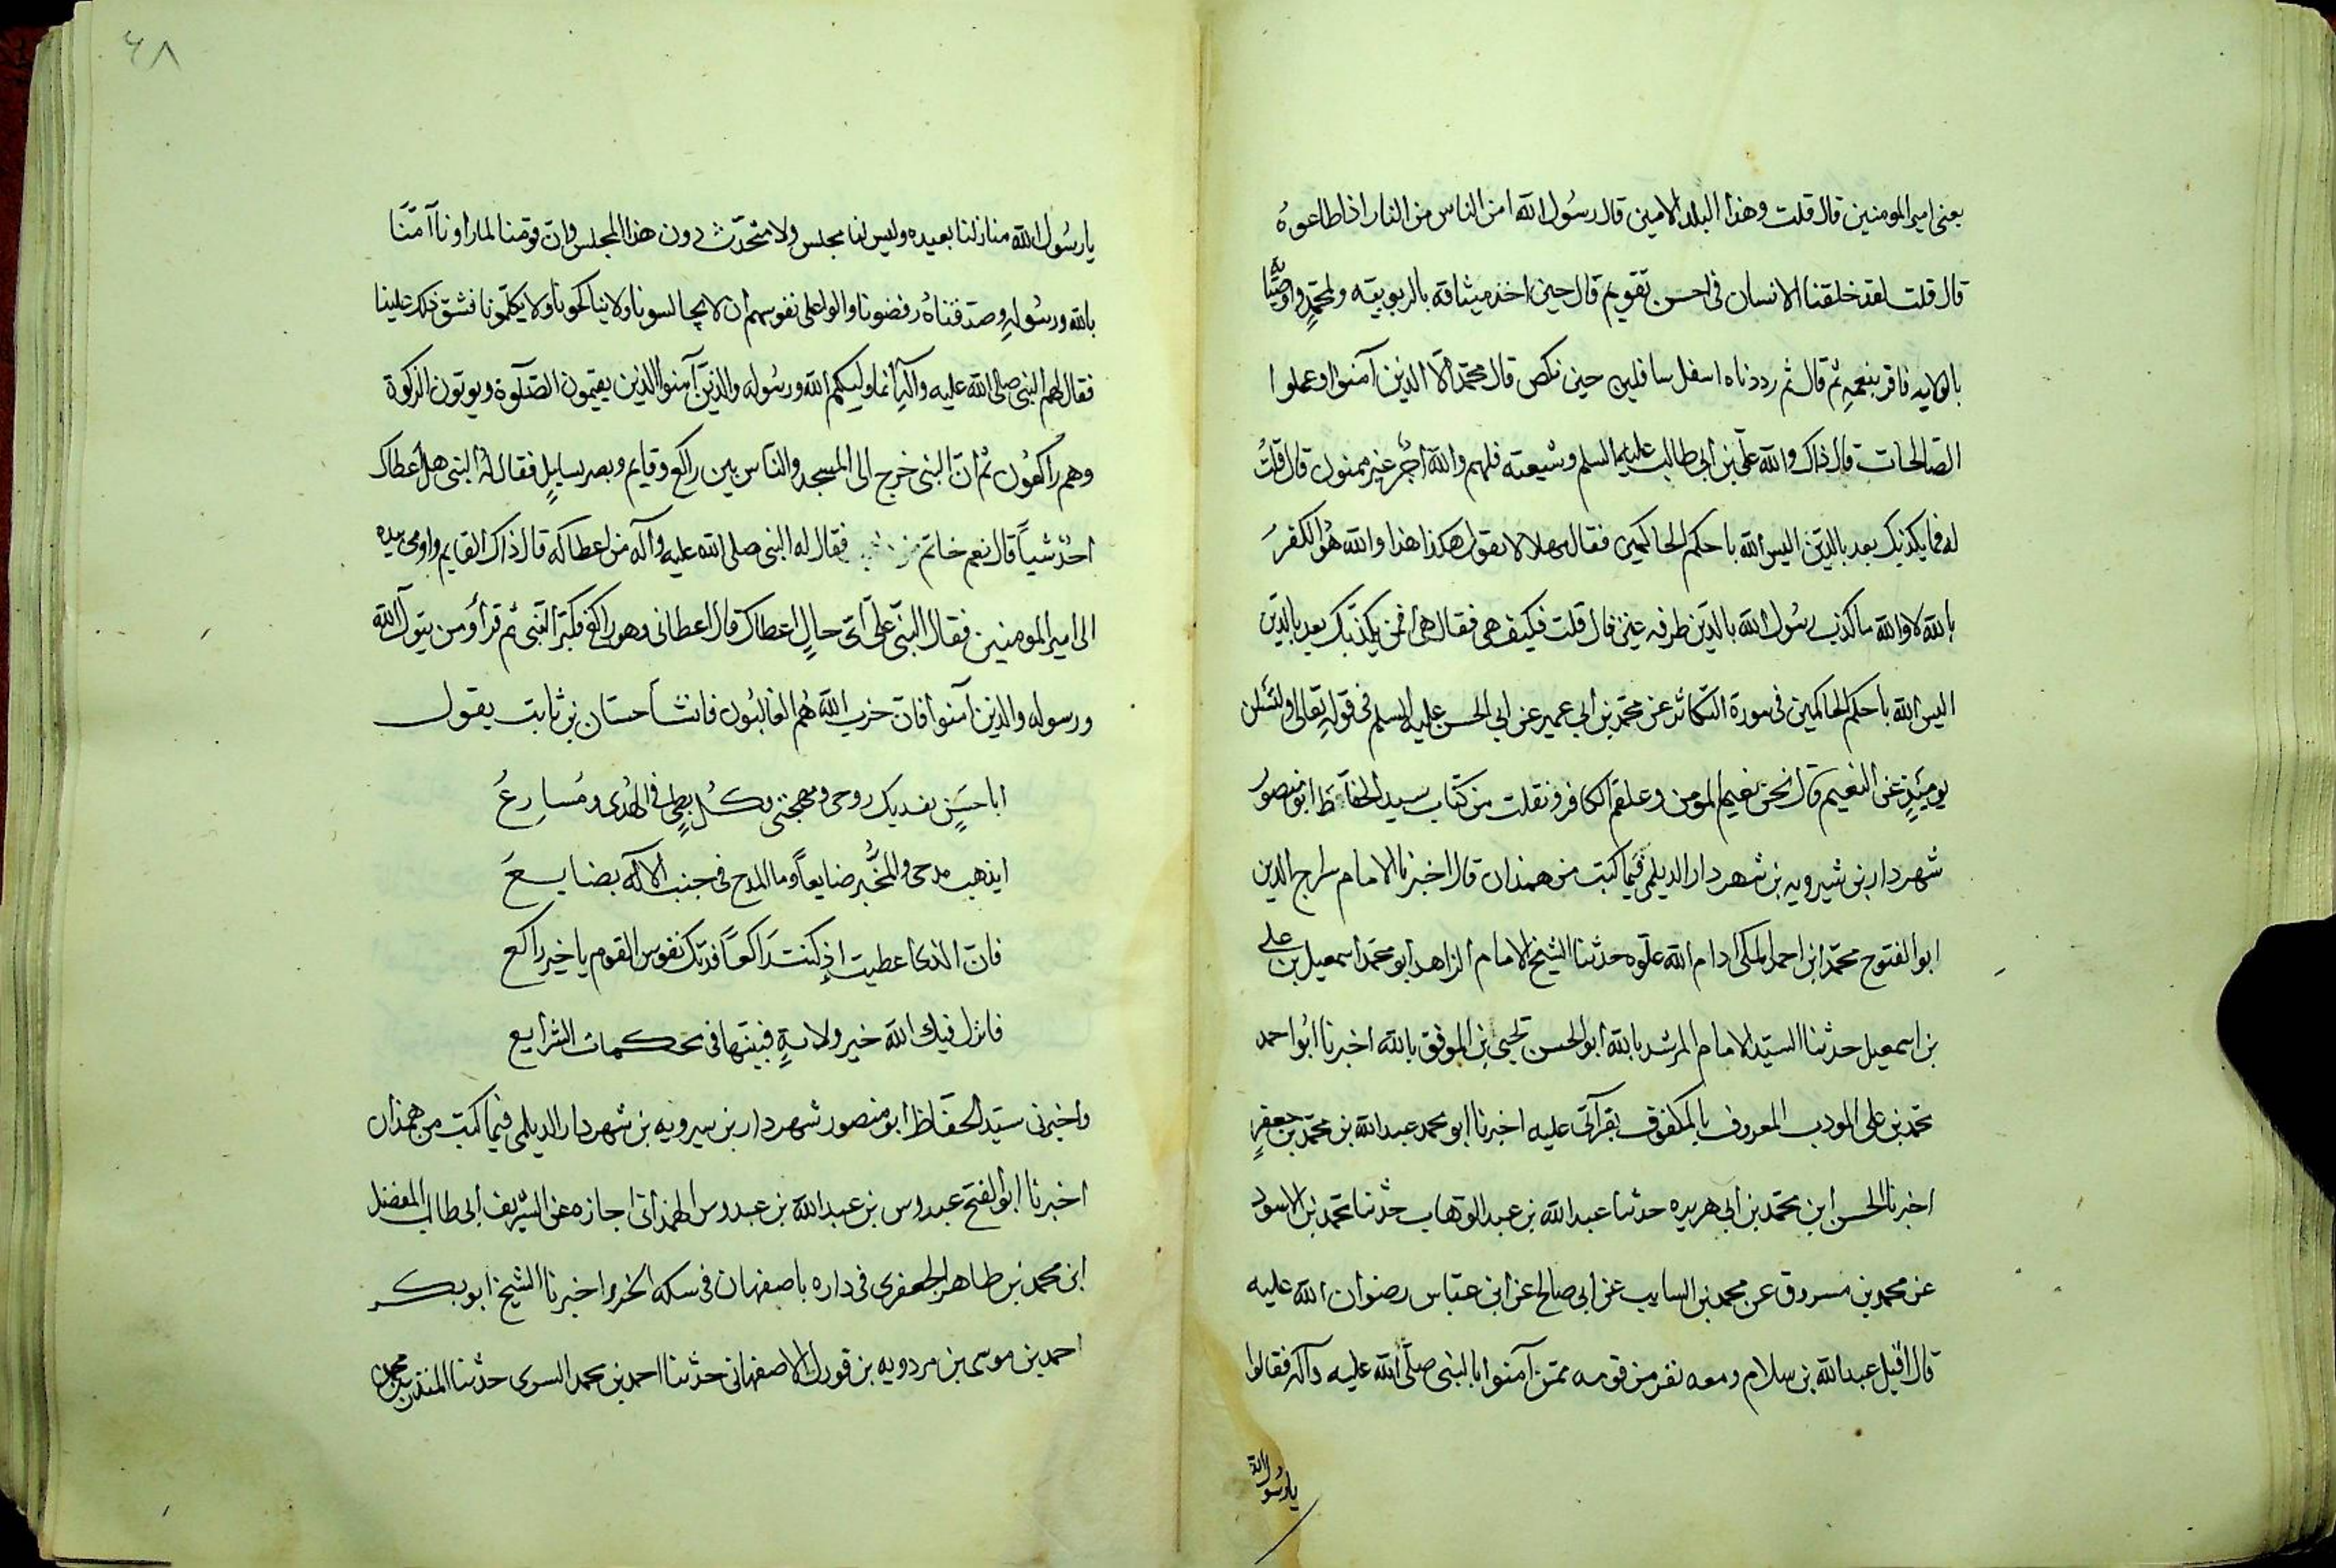 يعنى امير المومنين قال قلت وهذا البلد الامين قال رسُول الله امن الناس من النار اذا اطاعوهُ
قال قلت لقد خلقنا الانسان فى احسن تقويم قال حين اخذ ميثاقه بالربوبيّه ولمحمّدٍ واوصيائه
بالولايه فاقر بنعمهِ ثم قال ثم رددناه اسفل سافلين حين نكص قال محمّد الّا الذين آمنوا وعملوا
الصّالحات قال ذاك والله علّى بن ابى طالب عليهما السلم وشيعته فلهم والله اجرٌ غير ممنون قال قلتُ
له فما يكذبك بعد بالدين اليس الله باحكم الحاكمين فقال مهلا لا تقول هكذا هذا والله هُو الكفرُ
بالله لا والله ما كذب رسُول الله بالدّين طرفه عين قال قلت فكيف هى فقال هى افمن يكذّبك بعد بالدّين
اليس الله باحكم الحاكمين فى سورة التّكاثر عن محمّد بن ابى عمير عن ابى الحسن عليه السلم فى قولهِ تعالى ولتُسئلن
يومئِذٍ عن النعيم قال نحن نعيم المومن وعلقم الكافر ونقلت من كتاب سيد الحفّاظ ابو منصورُ
شهردار بن شيرويه بن شهردار الديلمى فيما كتبت من همذان قال اخبرنا الامام سراج الدين
ابو الفتوح محمّد ابن احمد المكى ادام الله علّوه حدثنا الشيخ الامام الزاهد ابو محمّد اسمعيل بن على
بن اسمعيل حدثنا السيّد الامام المرشد بالله ابو الحسن يحيى بن الموفق بالله اخبرنا ابُو احمد
محمّد بن على المودب المعروف بالمكفوف بقرآئى عليه اخبرنا ابو محمد عبد الله بن محمّد بن جعفرٍ
اخبرنا الحسن ابن محمّد بن ابى هريره حدثنا عبد الله بن عبد الوّهاب حدّثنا محمّد بن الاسود
عن محمد بن مسروق عن محمد بن السايب عن ابى صالح عن ابن عبّاس رضوان الله عليه
قال اقبل عبد الله بن سلام ومعه نفر من قومه ممّن آمنوا بالنبى صلّى الله عليه وآله فقالوا
يا رسُول الله
٤٨
يا رسُول الله منازلنا بعيده وليس لنا مجلس ولا متحدّث دون هذا المجلس وانّ قومنا لما راونا آمنّا
بالله ورسُولهِ وصدقناهُ رفضونا والوا على نفوسهم ان لا يجالسونا ولا يناكحونا ولا يكلّمونا فشق ذلك علينا
فقال لهم النبى صلى الله عليه وآله انما وليكم الله ورسُوله والذين آمنوا الذين يقيمون الصّلوة ويوتون الزكوة
وهم راكعُون ثم انّ النبى خرج الى المسجد والناس بين راكع وقايم وبصر بسايلٍ فقال لهُ النبى هل اعطاك
احدٌ شياً قال نعم خاتم من فقال له النبى صلى الله عليه وآله من اعطاكه قال ذاك القايم واومى بيده
الى امير المومنين فقال النبّى على اىّ حالٍ اعطاك قال اعطانى وهو راكع فكبّر النّبى ثم قرأ ومن يتول الله
ورسوله والذين آمنوا فان حزب الله هُم الغالبُون فانشأ حسّان بن ثابت يقول
ابا حسَنٍ تفديك روحى ومهجتى وكُل بطىٍ فى الهُدى ومُسارعُ
ايذهب مدحى والمُحبّر ضايعاً وما المدح فى جنب الاله بضايعَ
فانّ الذى اعطيت اذ كنتَ راكعاً فدتك نفوس القوم يا خير راكع
فانزل فيك الله خير ولايةٍ فبيّنها فى محكمات الشرايع
واخبرنى سيّد الحفّاظ ابو منصور شهردار بن سيرويه بن شهردار الديلمى فيما كتبت من همذان
اخبرنا ابو الفتح عبدوس بن عبد الله بن عبدوس الهمذانى اجازه عن الشريف ابى طالب المفضل
ابن محمد بن طاهر الجعفرى فى داره باصفهان فى سكه الخرز اخبرنا الشيخ ابو بكر
احمد بن موسى بن مردويه بن قورك الاصفهانى حدّثنا احمد بن محمد السرى حدّثنا المنذر بن محمد